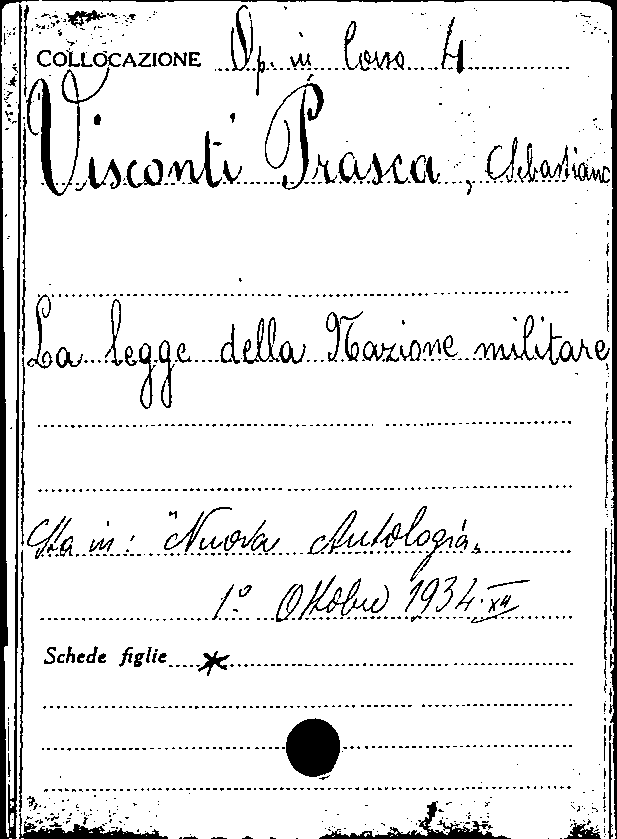 COLLOCAZIONE Op. in Corso 4
Visconti Prasca, Sebastiano
La legge della Nazione militare
Sta in: "Nuova Antologia"
1º Ottobre 1934-XII
Schede figlie *